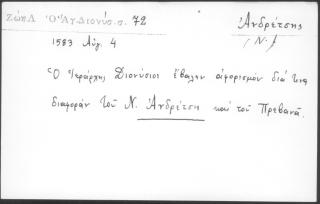 Ζώη Λ Ὁ Ἅγ. Διονύσ. σ. 72
Ἀνδρέτσης
(Ν.)
1583 Αὐγ. 4
Ὁ Ἱεράρχης Διονύσιος ἔβαλεν ἀφορισμόν διά τινα
διαφοράν τοῦ Ν. Ἀνδρέτση καί τοῦ Πρεβανᾶ.